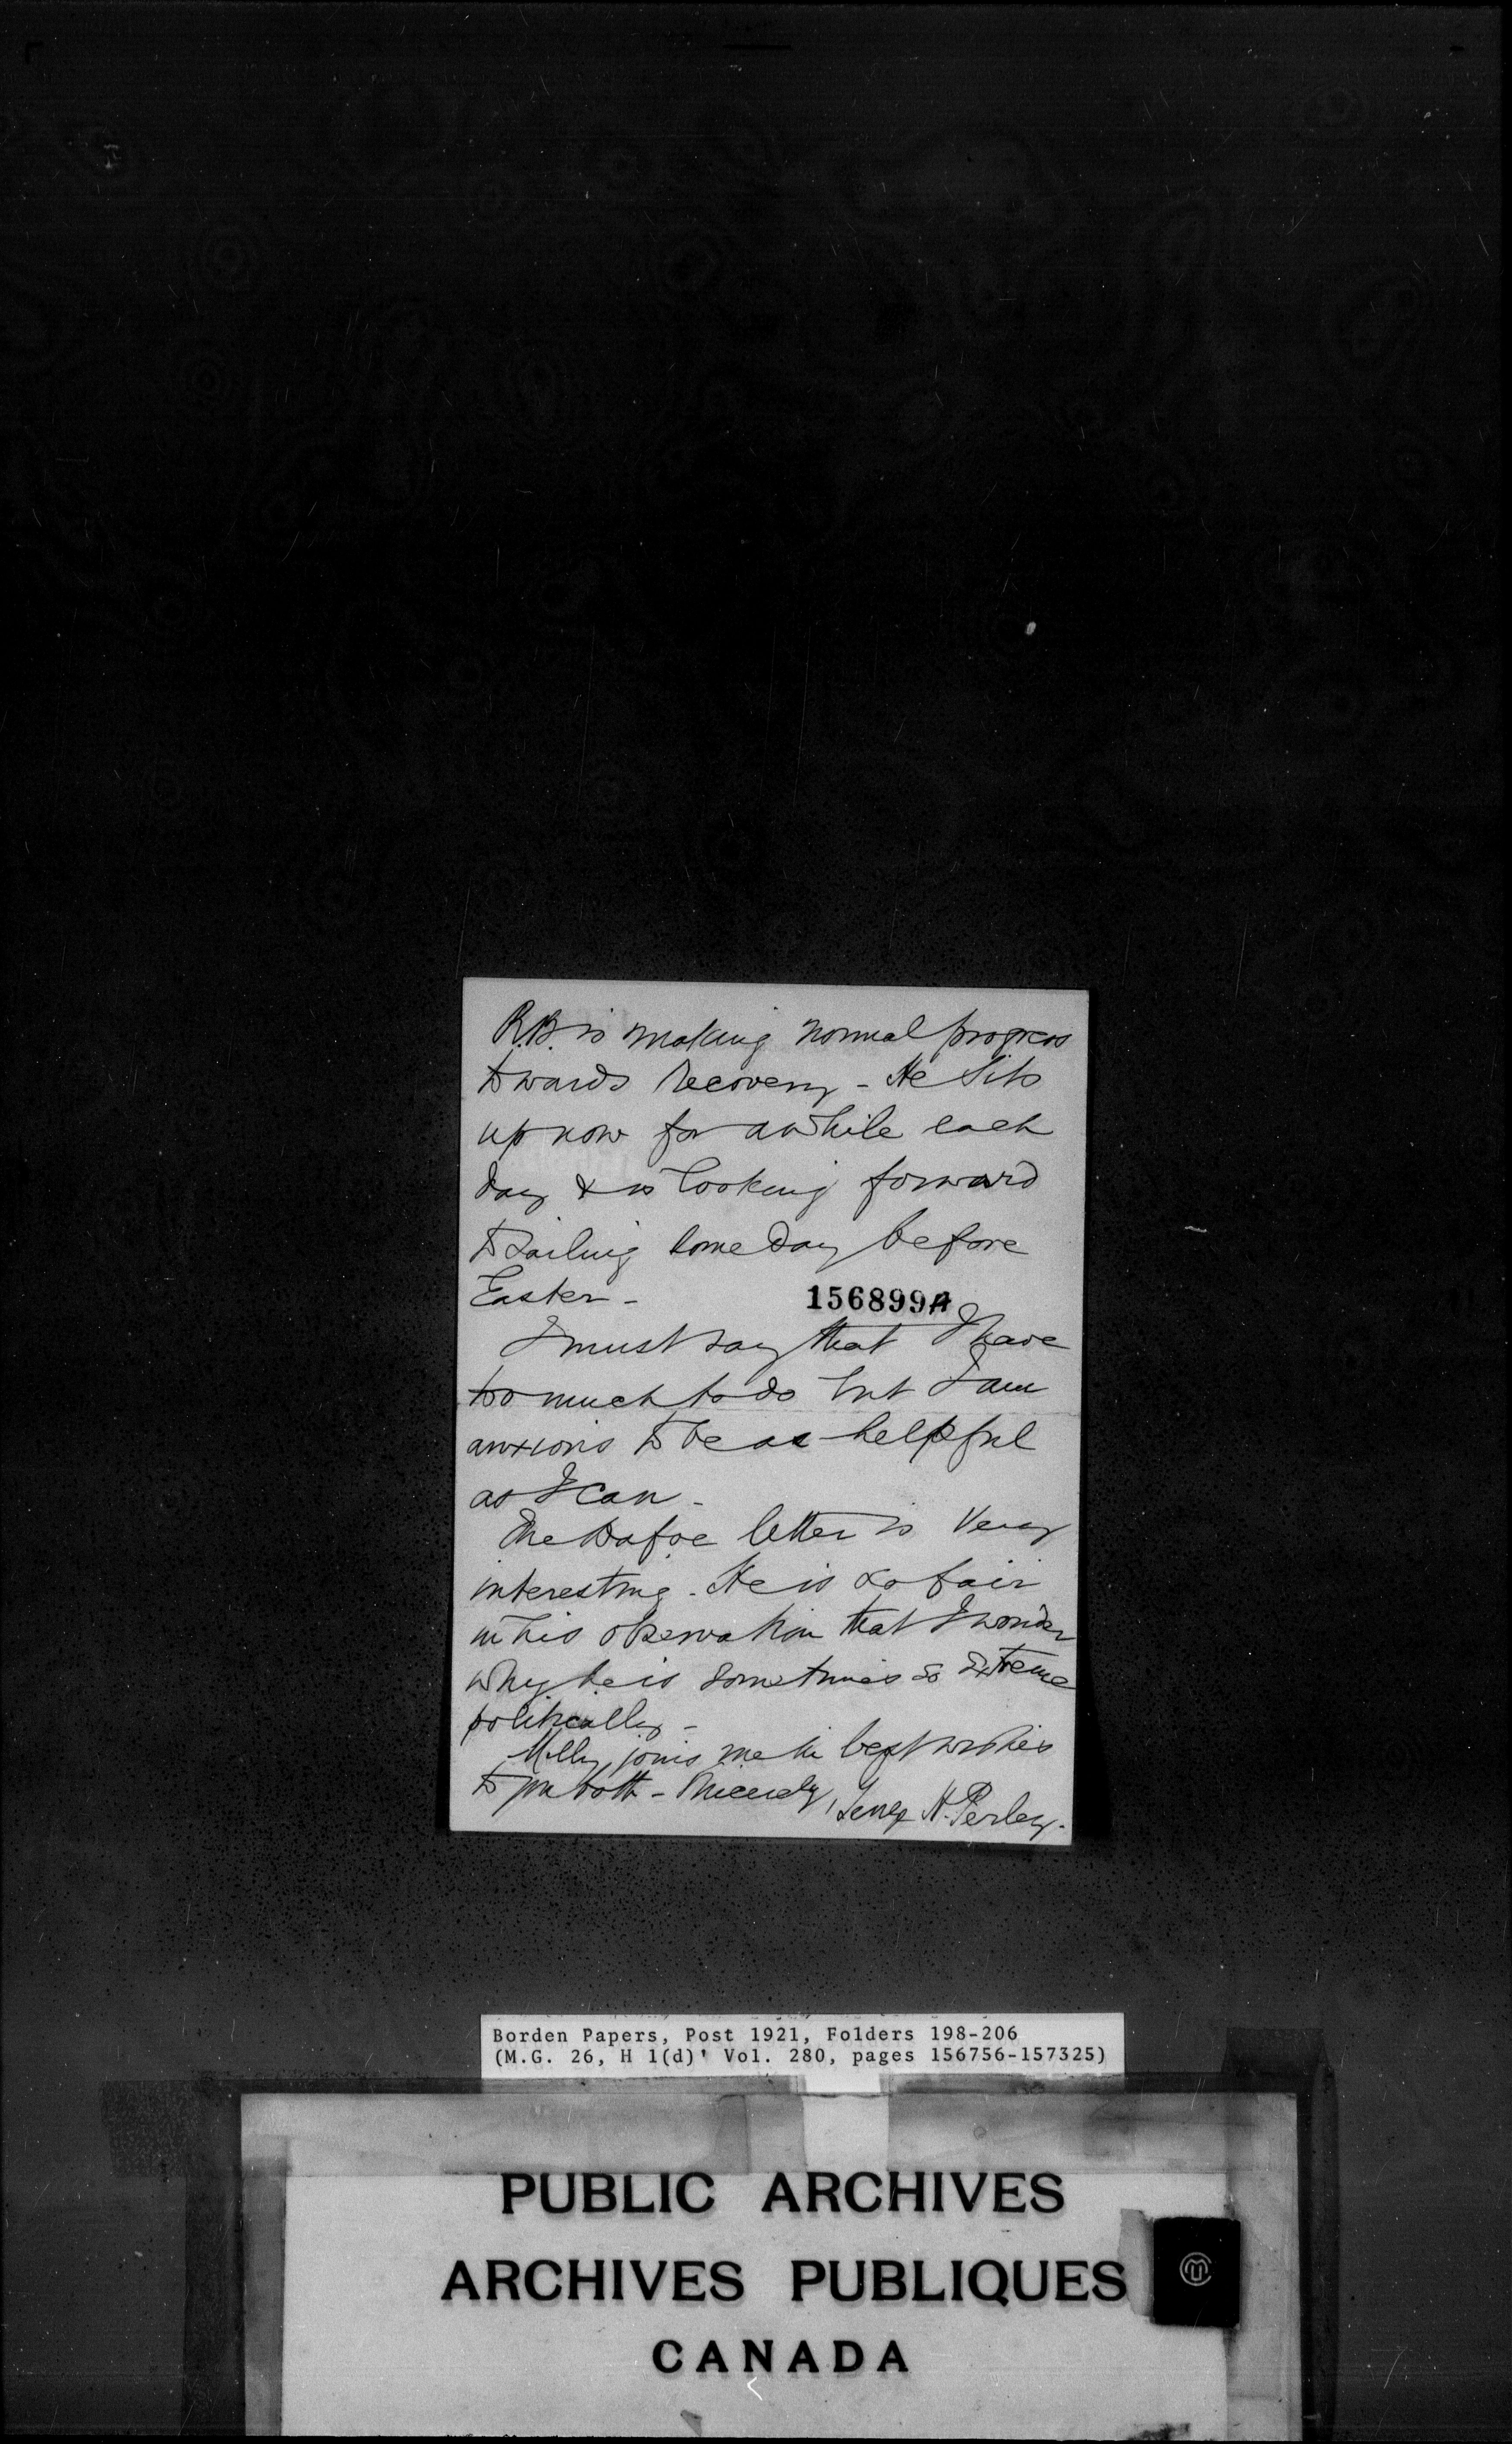 R.B. is making normal progress
towards recovery - He sits
up now for awhile each
day & is looking forward
to sailing some day before
Easter -
156899A
I must say that I have
too much to do but I am
anxious to be as helpful
as I can -
The Dafoe letter is very
interesting. He is so fair
in his observation that I wonder
why he is sometimes so extreme
politically -
Milly joins me in best wishes
to you both - Sincerely, George H. Perley.
Borden Papers, Post 1921, Folders 198-206
(M.G. 26, H 1(d)' Vol. 280, pages 156756-157325)
PUBLIC ARCHIVES
ARCHIVES PUBLIQUES
CANADA